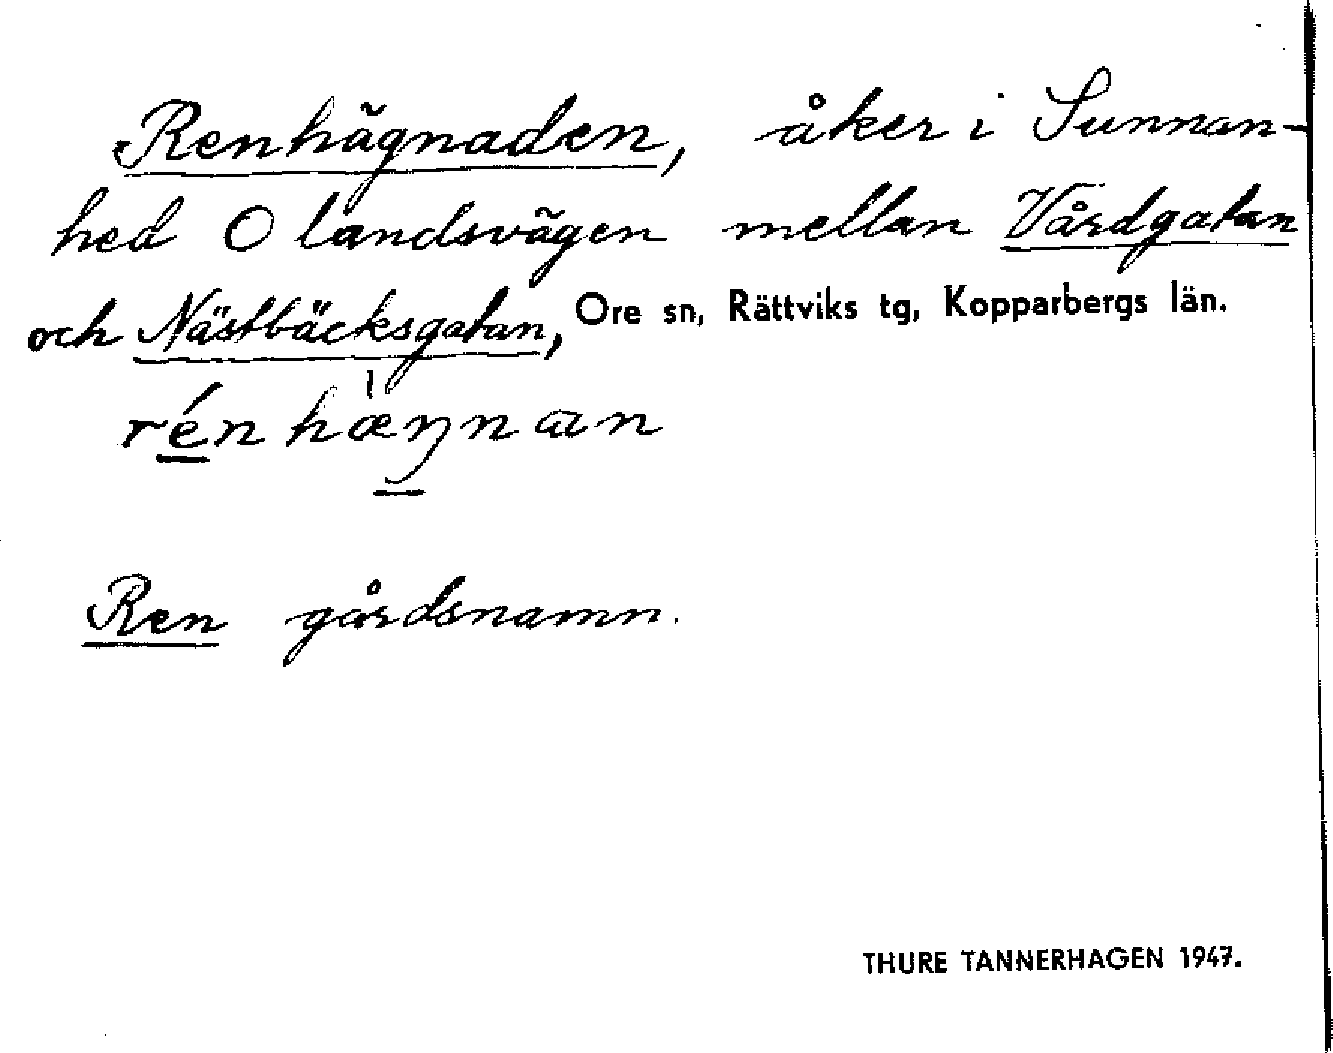 Renhägnaden, åker i Sunnan-
hed O landsvägen mellan Vårdgatan
och Nästbäcksgatan, Ore sn, Rättviks tg, Kopparbergs län.
rénhæŋnan
Ren gårdsnamn.
THURE TANNERHAGEN 1947.